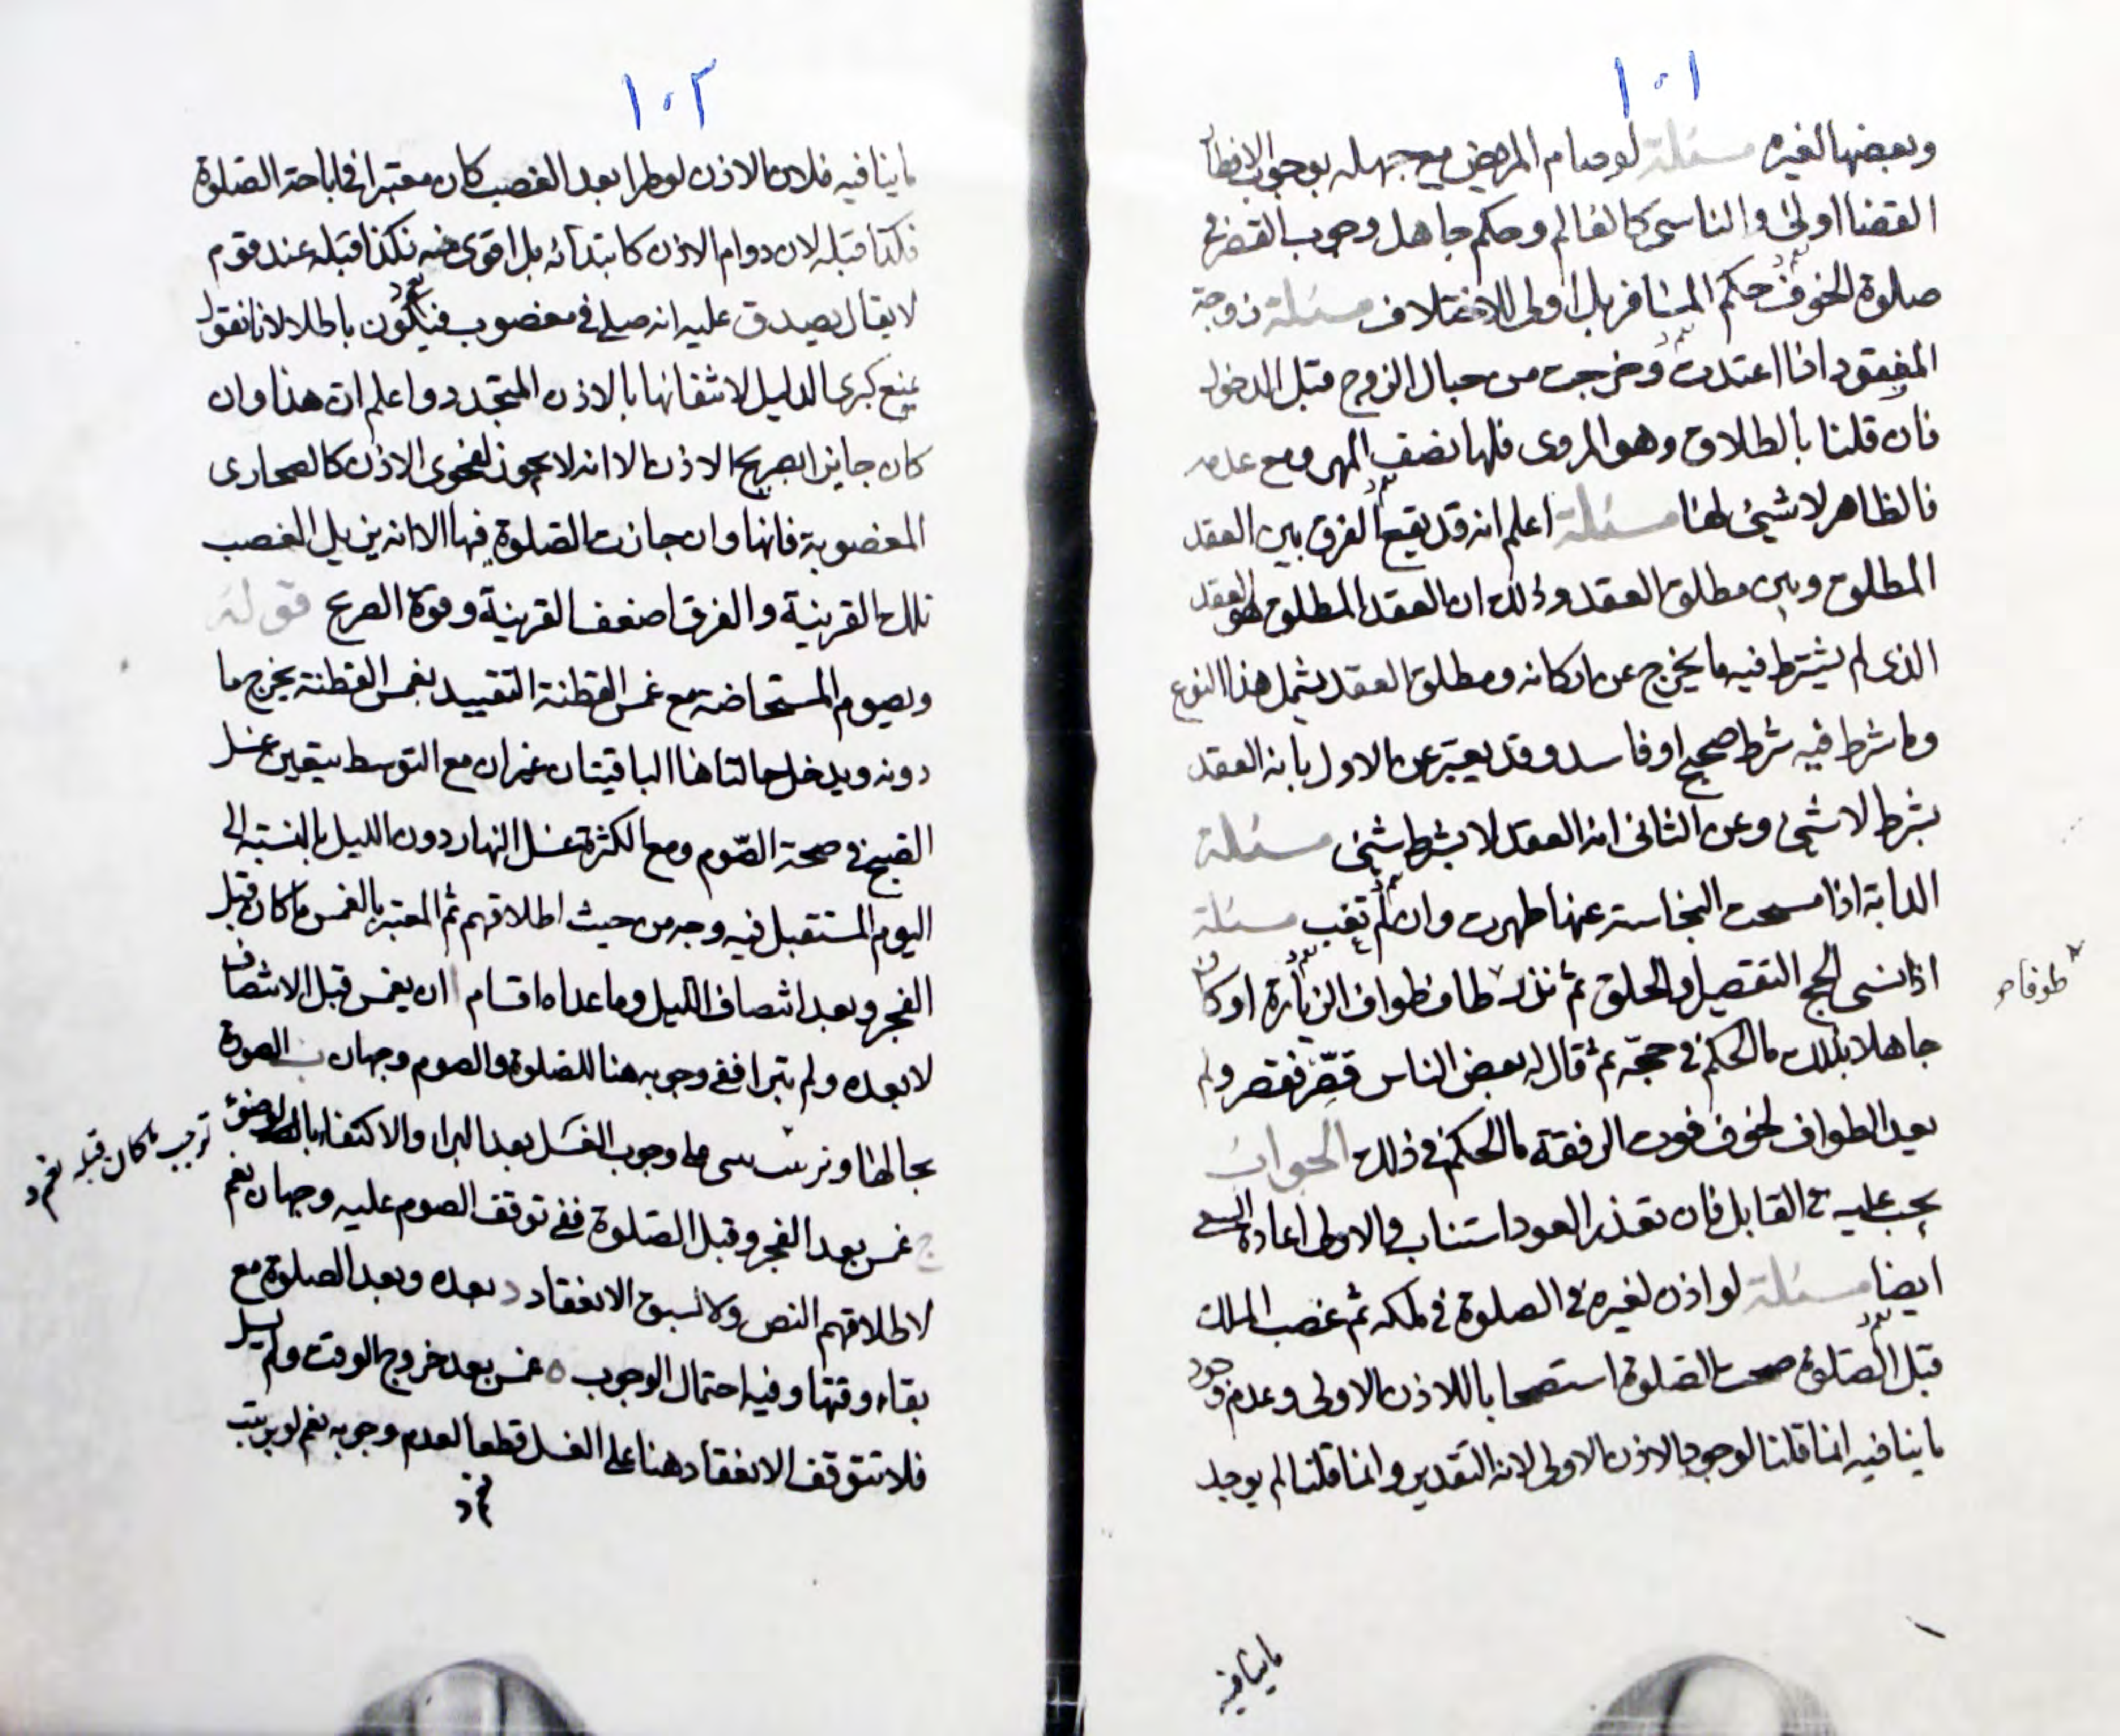 ١٠١
وبعضها لغيره مسئلة لو صام المريض مع جهله بوجوب الافطار
القضا اولى والناسى كالعالم وحكم جاهل وجوب القصر فى
صلوة الخوف حكم المسافر بل اولى للاختلاف مسئلة زوجة
المفقود اذا اعتدت وخرجت من حبال الزوج قبل الدخول
فان قلنا بالطلاق وهو المروى فلها نصف المهر ومع عدمه
فالظاهر لا شيئ لها مسئلة اعلم انه قد يقع الفرق بين العقد
المطلق وبين مطلق العقد وذلك ان العقد المطلق هو العقد
الذى لم يشترط فيه ما يخرج عن اركانه ومطلق العقد يشمل هذا النوع
وما شرط فيه شرط صحيح او فاسد وقد يعبر عن الاول بانه العقد
بشرط لا شئ وعن الثانى انه العقد لا بشرط شئ مسئلة
الدابة اذا مسحت النجاسة عنها طهرت وان لم تغب مسئلة
اذا نسى الحج التقصير او الحلق ثم طاف طواف الزيارة او كان
جاهلا بذلك ما الحكم فى حجّه ثم قال له بعض الناس قصّر فقصر ولم
يعد الطواف لخوف فوت الرفقة ما الحكم فى ذلك الجواب
يجب عليه فى القابل فان تعذر العود استناب والاولى اعادة السعى
ايضا مسئلة لو اذن لغيره فى الصلوة فى ملكه ثم غصب الملك
قبل الصلوة صحت الصلوة استصحابا للاذن الاولى وعدم وجود
ما ينافيه انما قلنا لوجود الاذن الاولى لانه التقدير وانما قلنا لم يوجد
ما ينافيه
١٠٢
ما ينافيه فلان الاذن لو طرا بعد الغصب كان معتبرا فى اباحة الصلوة
فكذا قبله لان دوام الاذن كابتدائه بل اقوى منه فكذا قبله عند قوم
لا يقال يصدق عليه انه صلى فى مغصوب فيكون باطلا لانا نقول
بمنع كبرى الدليل لانتفائها بالاذن المتجدد واعلم ان هذا وان
كان جايزا بصريح الاذن الا انه لا يجوز لفحوى الاذن كالصحارى
المغصوبة فانها وان جازت الصلوة فيها الا انه يزيل الغصب
تلك القرينة والفرق ضعف القرينة وقوة الصريح قوله
ويصوم المستحاضة مع غمس القطنة التقييد بغمس القطنة يخرج ما
دونه ويدخل حالتاها الباقيتان غير ان مع التوسط يتعين غسل
الصبح فى صحة الصّوم ومع الكثرة غسل النهار دون الليل بالنسبة الى
اليوم المستقبل فيه وجه من حيث اطلاقهم ثم المعتبر بالغمس ما كان قبل
الفجر وبعد انتصاف الليل وما عداه اقسام ا ان يغمس قبل الانتصاف
لا بعده ولم تبرا ففى وجوبه هنا للصلوة والصوم وجهان ب الصورة
بحالها وبرئت وجوب الغسل بعد البرا والاكتفاء بالوضوء
ج غمس بعد الفجر وقبل الصلوة ففى توقف الصوم عليه وجهان نعم
لاطلاقهم النص ولا لسبق الانعقاد د بعده وبعد الصلوة مع
بقاء وقتها وفيه احتمال الوجوب ه غمس بعد خروج الوقت ولم يسل
فلا تتوقف الانعقاد هنا على الغسل قطعا لعدم وجوبه نعم لو
ما كان قبله